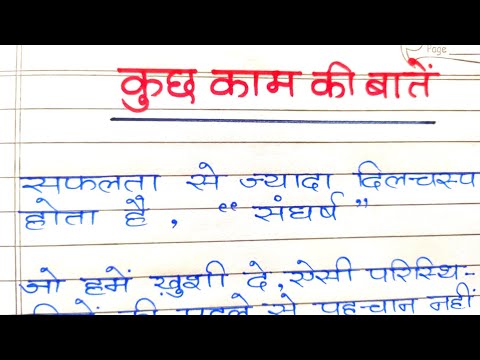 Page
कुछ काम की बातें
सफलता से ज्यादा दिलचस्प
होता है, “संघर्ष”
जो हमें ख़ुशी दे, ऐसी परिस्थि-
तियों की पहले से पहचान नहीं